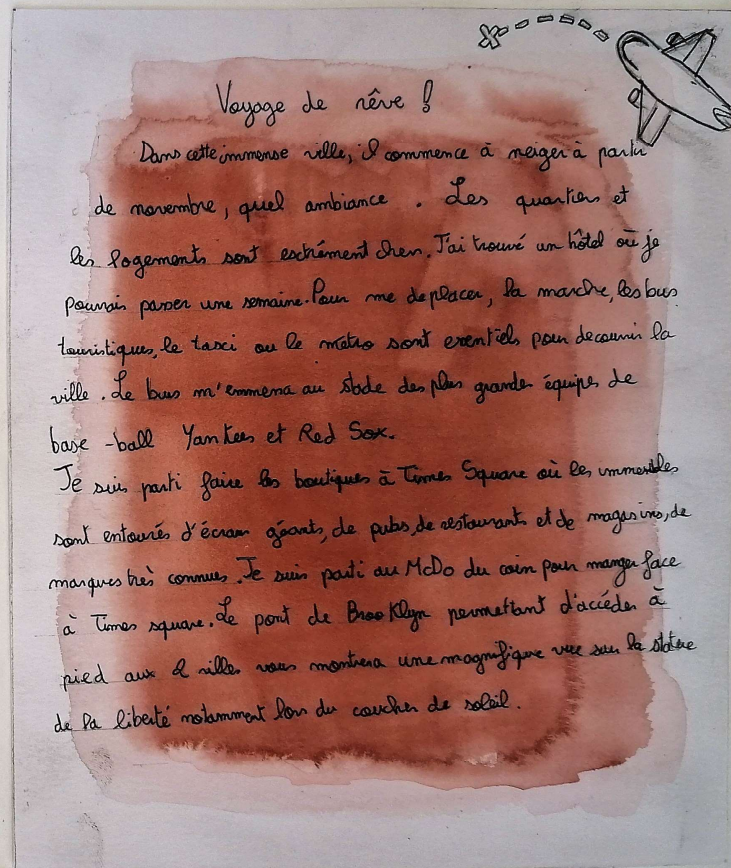 Voyage de rêve !
Dans cette immense ville, il commence à neiger à partir
de novembre, quel ambiance . Les quartiers et
les logements sont extrément chers. J'ai trouvé un hôtel où je
pouvais passer une semaine. Pour me deplacer, la marche, les bus
touristiques, le taxi ou le métro sont esentiels pour decouvrir la
ville . Le bus m'emmena au stade des plus grandes équipes de
base -ball Yankees et Red Sox.
Je suis parti faire les boutiques à Times Square où les immeubles
sont entourés d'écran géants, de pubs, de restaurants et de magasins, de
marques très connues. Je suis parti au McDo du coin pour manger face
à Times square. Le pont de Brooklyn permettant d'accéder à
pied aux 2 villes vous montrera une magnifique vue sur la statue
de la liberté notamment lors du coucher de soleil.